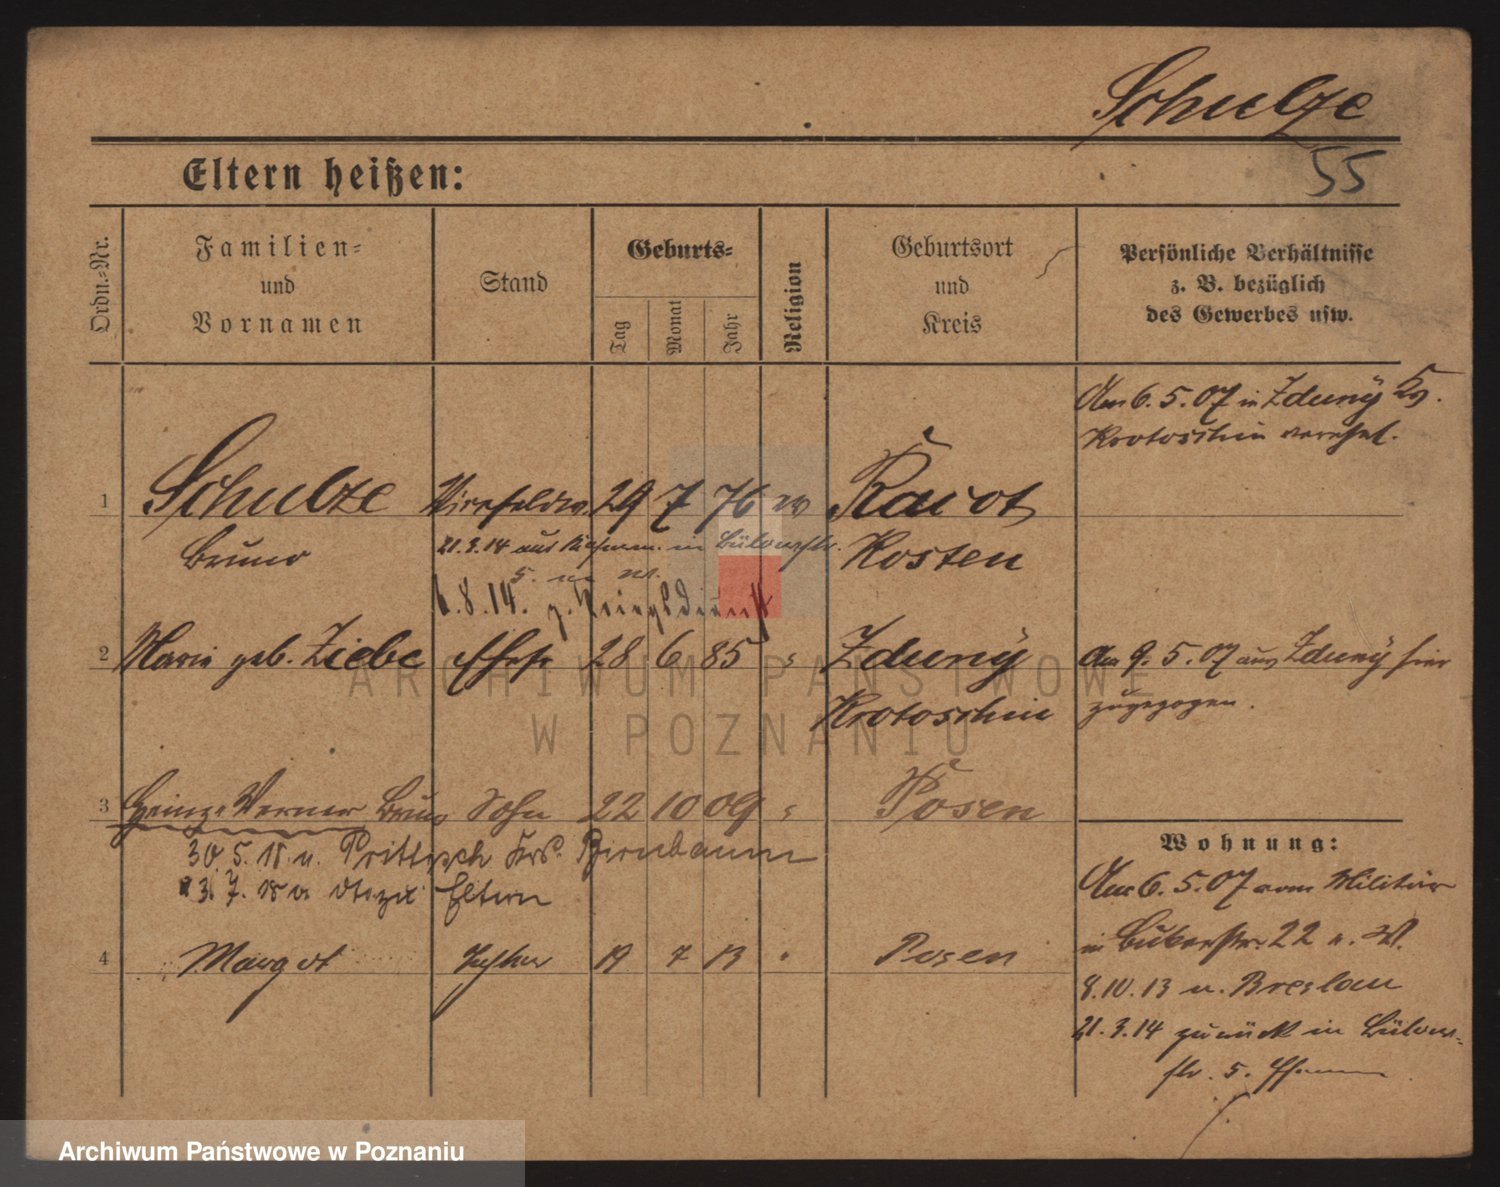 Schulze
55
Eltern heißen:
Ordn.-Nr.
Familien-
und
Vornamen
Stand
Geburts-
Tag
Monat
Jahr
Religion
Geburtsort
und
Kreis
Persönliche Verhältnisse
z. B. bezüglich
des Gewerbes usw.
Am 6. 5. 07 in Zduny
Krotoschin verehel.
1 Schulze 29 7 76 Raiot
Bruno Kosten
21.3.14 aus in Bülowstr.
5.
6.8.14. z. Kriegsdienst
2 Marie geb. Ziebe Ehefr 28 6 85 Zduny
Krotoschin
Am 9. 5. 07 aus Zduny hier
zugezogen.
3 Heinz-Werner Bruno Sohn 22 10 09 Posen
30. 5. 18. n. Prittisch Krs. Birnbaum
3. 7. 18 Eltern
4 Margot Tochter 19 7 13 Posen
Wohnung:
Am 6. 5. 07 vom Militär
in 22 n. W.
8.10.13 n. Breslau
21.3.14 zurück in Bülow-
str. 5.
ARCHIWUM PAŃSTWOWE
W POZNANIU
Archiwum Państwowe w Poznaniu